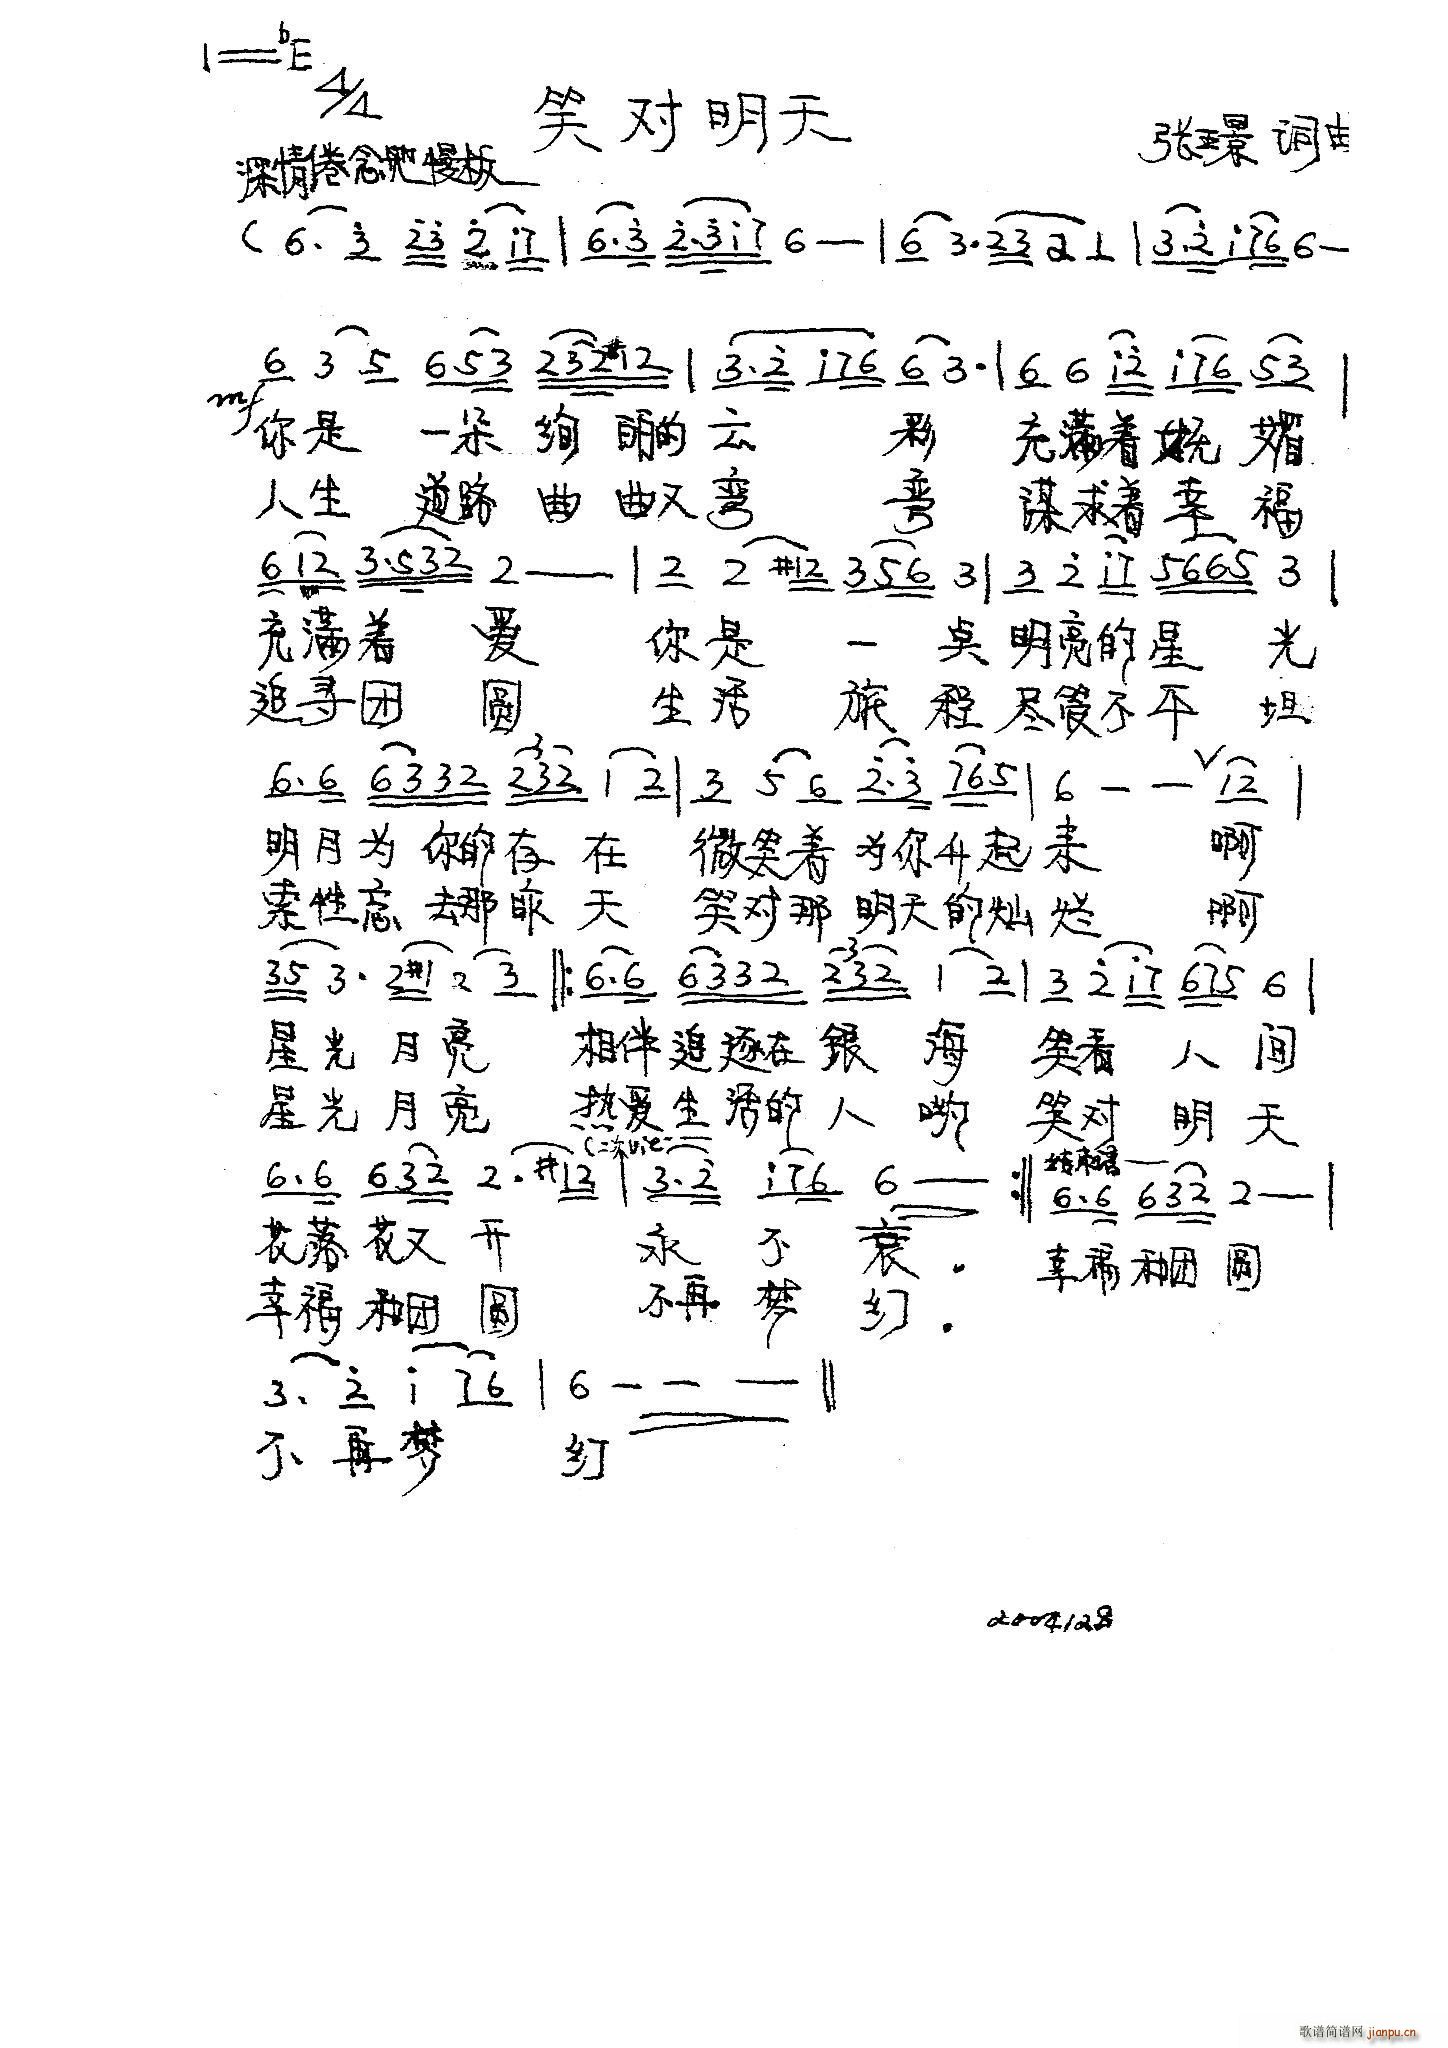 1=bE
4/4
笑对明天
张璟 词曲
深情倦念地 慢板
( 6. 3 23 2 17 | 6.3 2.317 6 — | 6 3.23 21 | 3.2 176 6 —
6 3 5 653 232#12 | 3.2 176 6 3. | 6 6 12 176 53 |
mf
你是 一朵 绚 丽的 云 彩 充满着 妩 媚
人生 道路 曲 曲又 弯 弯 谋求着 幸 福
612 3.532 2 — | 2 2 #12 356 3 | 3 2 17 5665 3 |
充满着 爱 你是 一 点 明亮的 星 光
追寻团 圆 生活 旅 程 尽管不 平 坦
6.6 6332 232 1 2 | 3 5 6 2.3 765 | 6 — — V 12 |
明月为 你的 存 在 微笑着 为你升起 来 啊
索性忘 去那 昨 天 笑对那 明天的灿 烂 啊
35 3. 2#1 2 3 ‖: 6.6 6332 232 1 2 | 3 2 17 675 6 |
星光 月亮 相伴追逐在 银 海 笑看 人 间
星光 月亮 热爱生活的 人 哟 笑对 明 天
6.6 632 2. #12 | 3.2 176 6 — :‖ 6.6 632 2 — |
花落 花又 开 永 不 衰.
幸福 和团 圆 不再 梦 幻.
幸福 和团 圆
3. 2 1 76 | 6 — — — ‖
不 再 梦 幻
歌谱简谱网 jianpu.cn